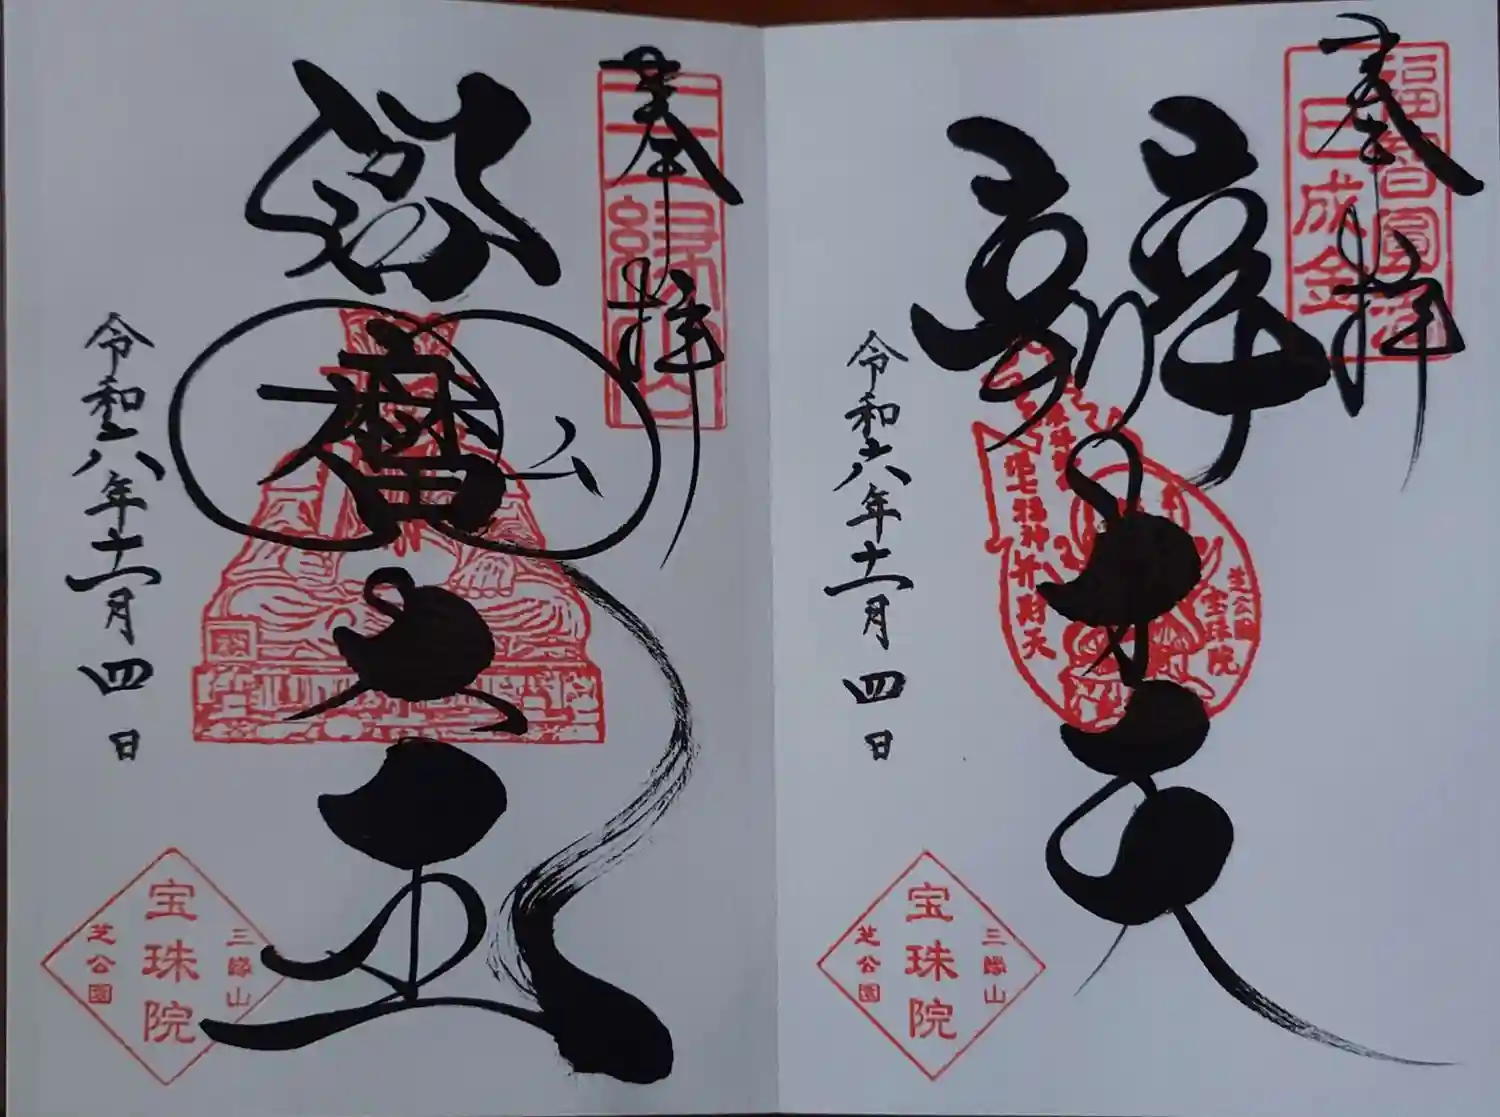 奉拝
福智圓満
巳成金
辨才天
港七福神弁財天
芝公園
宝珠院
令和六年十一月四日
三縁山
宝珠院
芝公園
奉拝
三縁山
閻魔大王
令和六年十一月四日
三縁山
宝珠院
芝公園